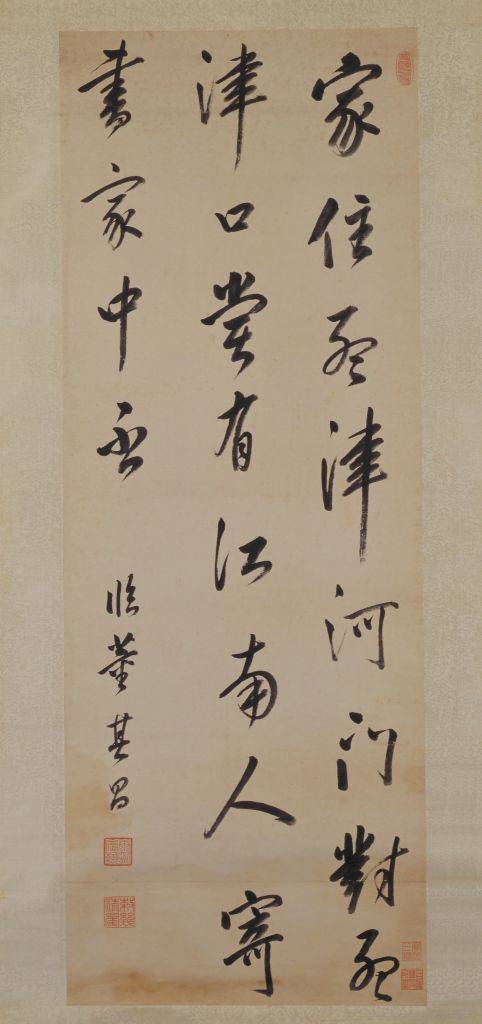 家住孟津河門對孟
津口嘗有江南人寄
書家中否
臨董其昌